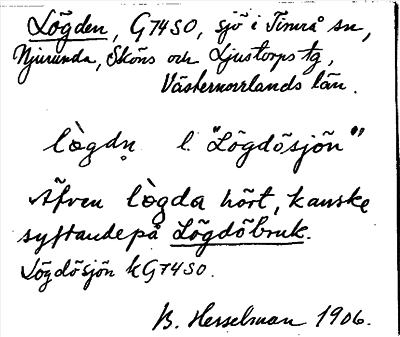 Lögden, G74SO, sjö i Timrå sn,
Njurunda, Sköns och Ljustorps tg,
Västernorrlands län.
lògdṇ l. "Lögdösjön"
Äfven lògda hört, kanske
syftande på Lögdöbruk.
Lögdösjön kG74SO.
B. Hesselman 1906.